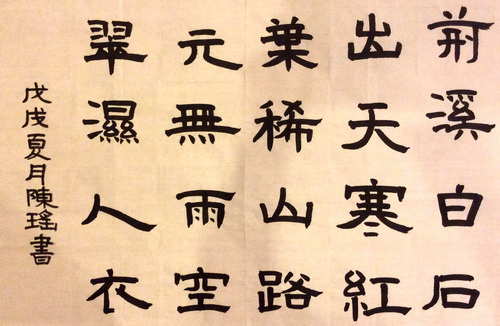 荊溪白石
出天寒紅
葉稀山路
元無雨空
翠濕人衣
戊戌夏月陳瑤書